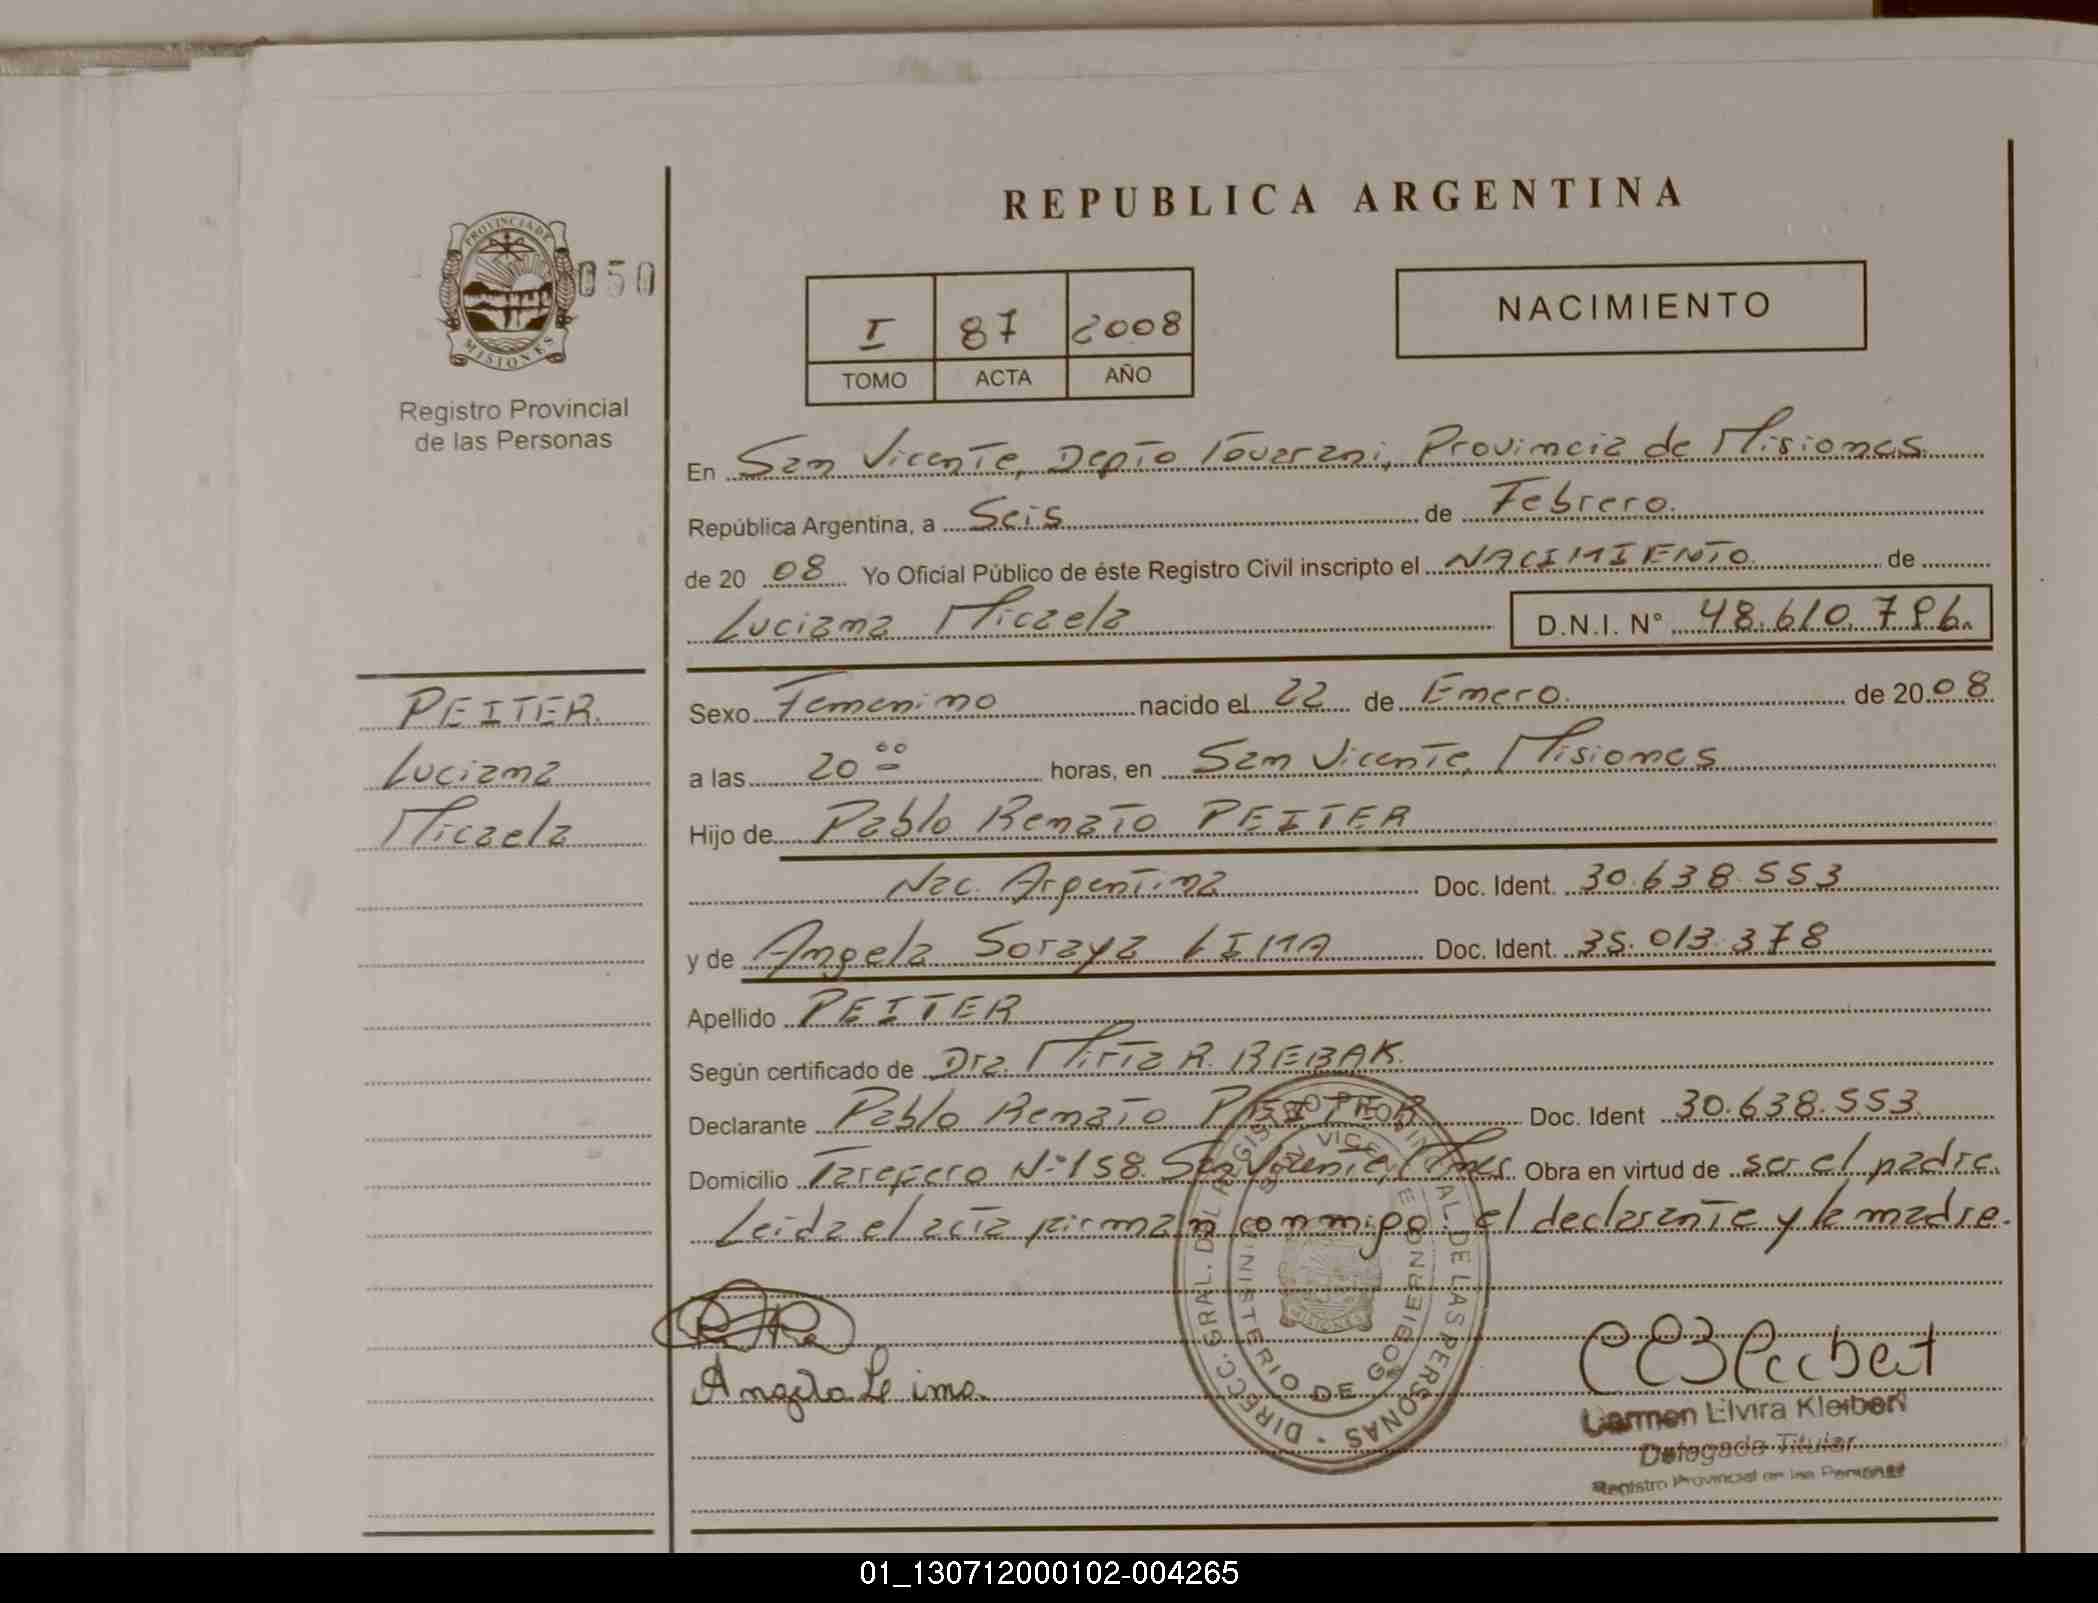 REPUBLICA ARGENTINA
PROVINCIA DE
MISIONES
050
Registro Provincial
de las Personas
I 87 2008
TOMO ACTA AÑO
NACIMIENTO
En San Vicente, Depto Guarani, Provincia de Misiones
República Argentina, a Seis de Febrero.
de 20 08 Yo Oficial Público de éste Registro Civil inscripto el NACIMIENTO de
Luciana Micaela D.N.I. N° 48.610.796.
PEITER
Luciana
Micaela
Sexo Femenino nacido el 22 de Enero. de 20 08
a las 20 00 horas, en San Vicente, Misiones
Hijo de Pablo Renato PEITER
Nac. Argentina Doc. Ident. 30.638.553
y de Angela Soraya LIMA Doc. Ident. 35.013.378
Apellido PEITER
Según certificado de Dra. Mirta R. BEBAK.
Declarante Pablo Renato PEITER Doc. Ident 30.638.553
Domicilio Tarefero N° 158. San Vicente, Mnes. Obra en virtud de ser el padre.
Leida el acta firman conmigo: el declarante y la madre.
DIRECC. GRAL. DEL REGISTRO PROVINCIAL DE LAS PERSONAS
SAN VICENTE
MINISTERIO DE GOBIERNO
MISIONES
Angela Lima
Carmen Elvira Kleibert
Delegada Titular
Registro Provincial de las Personas
01_130712000102-004265